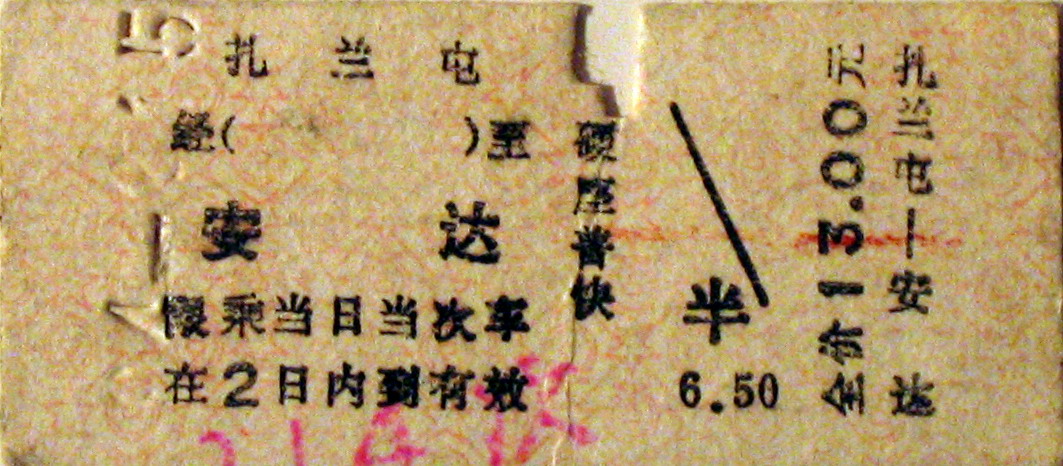 扎兰屯
经( )至
安达
限乘当日当次车
在2日内到有效
硬座普快
半
6.50
全价13.00元
扎兰屯—安达